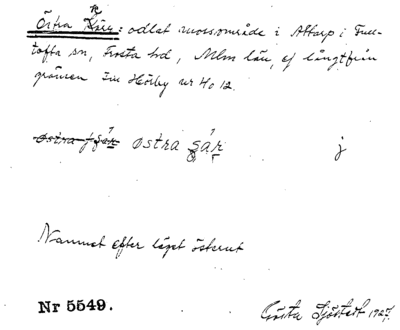 Östra Kärr: odlat mossområde i Attarp i Ful-
tofta sn, Frosta hd, Mlm län, ej långt från
gränsen till Hörby nr 4 o 12.
östra ɡár j
Namnet efter läget österut
Nr 5549. Gösta Sjöstedt 1927.